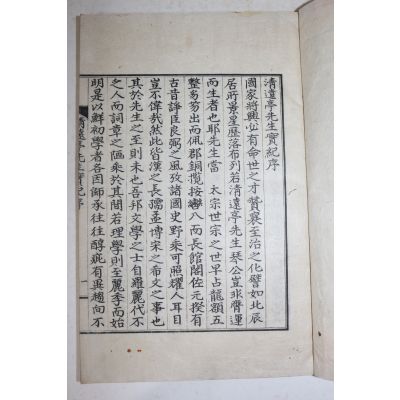 清遠亭先生實紀序
國家將興必有命世之才贊襄至治之化譬如北辰
居所景星歷落布列若清遠亭先生琴公豈非膺運
而生者也耶先生當 太宗世宗之世早占龍頭五
整易芴出而佩郡銅攬按轡八而長館閣佐元揆有
古昔諍臣良弼之風攷諸國史野乘可照耀人耳目
豈不偉哉然此皆漢之長孺孟博宋之希文之事也
其於先生之至則末也吾邦文學之士自羅麗代不
乏人而詞章之陋乘於其間若理學則至麗季而始
明是以鮮初學者各因師承往往醇疵有異趨向不
清遠亭先生實紀序
一